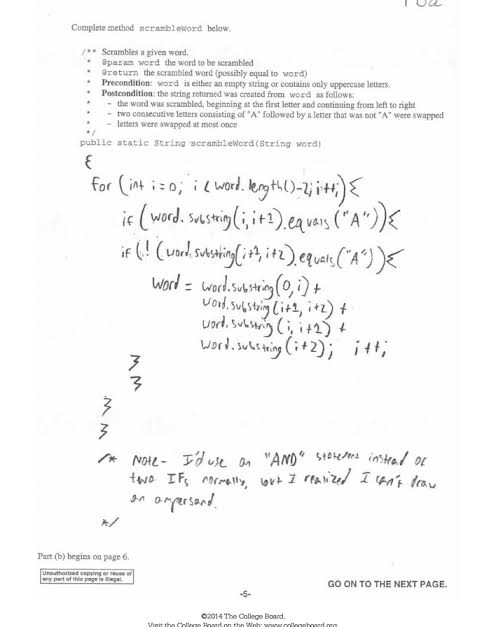 Complete method scrambleWord below.
/** Scrambles a given word.
* @param word the word to be scrambled
* @return the scrambled word (possibly equal to word)
* Precondition: word is either an empty string or contains only uppercase letters.
* Postcondition: the string returned was created from word as follows:
* - the word was scrambled, beginning at the first letter and continuing from left to right
* - two consecutive letters consisting of "A" followed by a letter that was not "A" were swapped
* - letters were swapped at most once
*/
public static String scrambleWord(String word)
{
for (int i=0; i < word.length()-2; i++;) {
if (word.substring(i, i+1).equals("A")) {
if (! (word.substring(i+1, i+2).equals("A")) {
word = word.substring(0, i) +
word.substring(i+1, i+2) +
word.substring(i, i+1) +
word.substring(i+2); i++;
}
}
}
}
/* Note- I'd use an "AND" statement instead of
two IFs normally, but I realized I can't draw
an ampersand.
*/
Part (b) begins on page 6.
Unauthorized copying or reuse of
any part of this page is illegal.
GO ON TO THE NEXT PAGE.
-5-
©2014 The College Board.
Visit the College Board on the Web: www.collegeboard.org